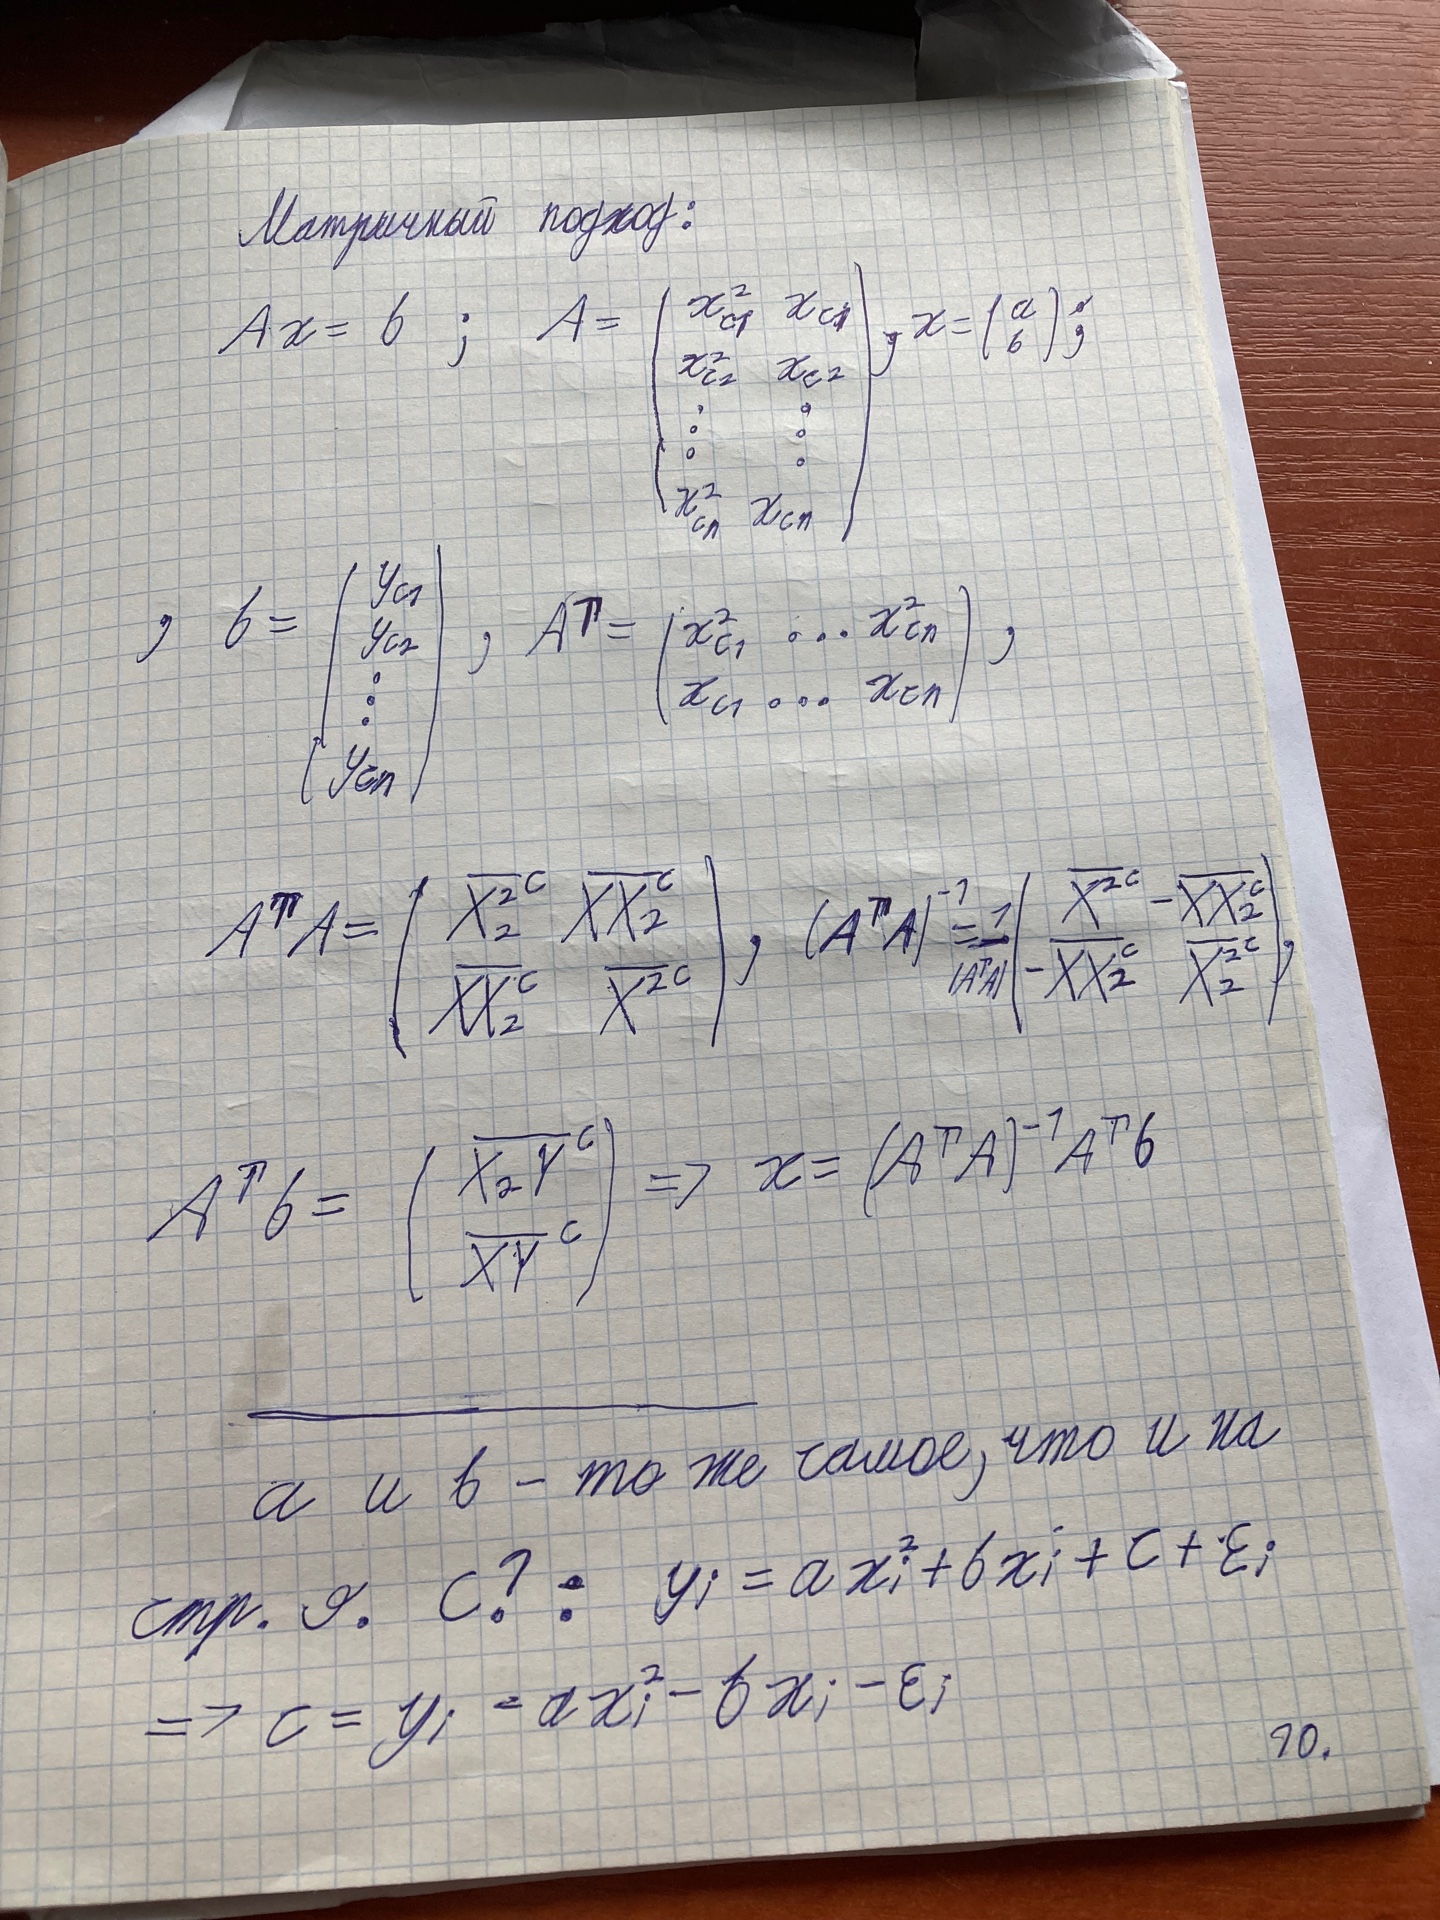 Матричный подход:
Ax = b ; A = \begin{pmatrix} x_{c1}^2 & x_{c1} \\ x_{c2}^2 & x_{c2} \\ \vdots & \vdots \\ x_{cn}^2 & x_{cn} \end{pmatrix}, x = \begin{pmatrix} a \\ b \end{pmatrix};
, b = \begin{pmatrix} y_{c1} \\ y_{c2} \\ \vdots \\ y_{cn} \end{pmatrix}, A^T = \begin{pmatrix} x_{c1}^2 & \dots & x_{cn}^2 \\ x_{c1} & \dots & x_{cn} \end{pmatrix},
A^T A = \begin{pmatrix} \overline{X_2^2}^c & \overline{XX_2}^c \\ \overline{XX_2}^c & \overline{X^2}^c \end{pmatrix}, (A^T A)^{-1} = \frac{1}{|A^T A|} \begin{pmatrix} \overline{X^2}^c & -\overline{XX_2}^c \\ -\overline{XX_2}^c & \overline{X_2^2}^c \end{pmatrix},
A^T b = \begin{pmatrix} \overline{X_2 Y}^c \\ \overline{XY}^c \end{pmatrix} => x = (A^T A)^{-1} A^T b
a и b - то же самое, что и на
стр. 9. C?: y_i = ax_i^2 + bx_i + c + ε_i
=> c = y_i - ax_i^2 - bx_i - ε_i
10.